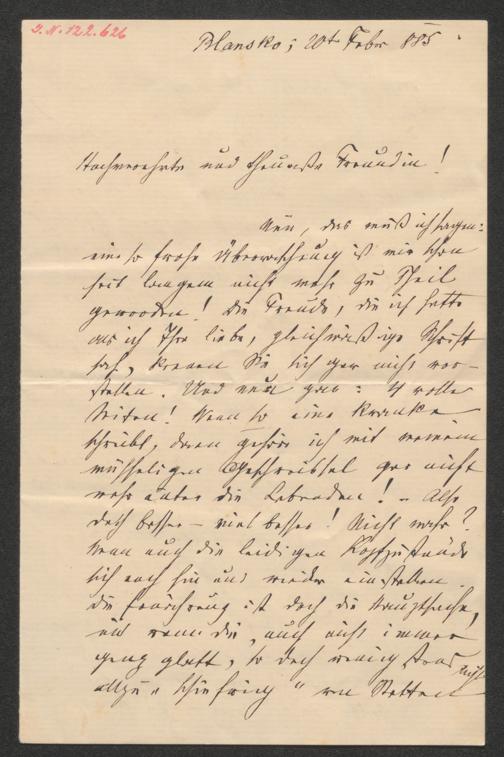 I. N. 122.626
Blansko, 20t Feber 885
Hochverehrte und theuerste Freundin!
Nun, das muß ich sagen:
eine so frohe Überraschung ist mir schon
seit langem nicht mehr zu Theil
geworden! Die Freude, die ich hatte
als ich Ihre liebe, gleichmäßige Schrift
sah, können Sie sich gar nicht vor-
stellen. Und nun gar: 4 volle
Seiten! Wenn so eine Kranke
schreibt, dann gehöre ich mit meinem
müsseligen Geschreibsel gar nicht
mehr unter die Lebenden! – Also
doch besser – viel besser! Nicht wahr?
Wenn auch die leidigen Kopfzustände
sich noch hin und wieder einstellen.
Die Ernährung ist doch die Hauptsache,
und wenn die, auch nicht immer
ganz glatt, so doch wenigstens nicht
allzu „ " von Statten